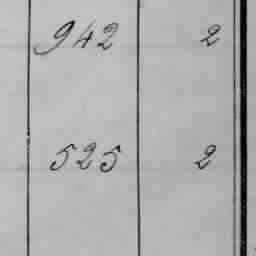 942 2
525 2